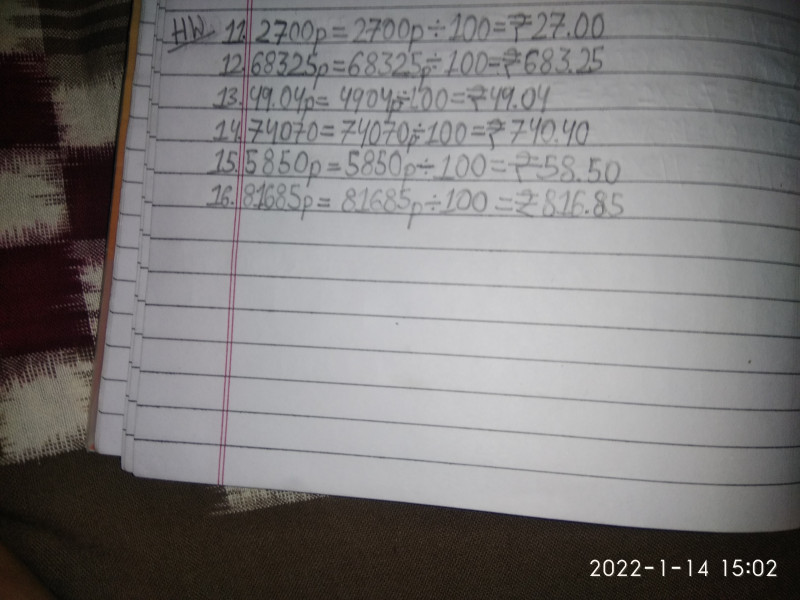 HW 11. 2700p = 2700p ÷ 100 = ₹ 27.00
12. 68325p = 68325p ÷ 100 = ₹ 683.25
13. 49.04p = 4904p ÷ 100 = ₹ 49.04
14. 74070 = 74070p ÷ 100 = ₹ 740.40
15. 5850p = 5850p ÷ 100 = ₹ 58.50
16. 81685p = 81685p ÷ 100 = ₹ 816.85
2022-1-14 15:02